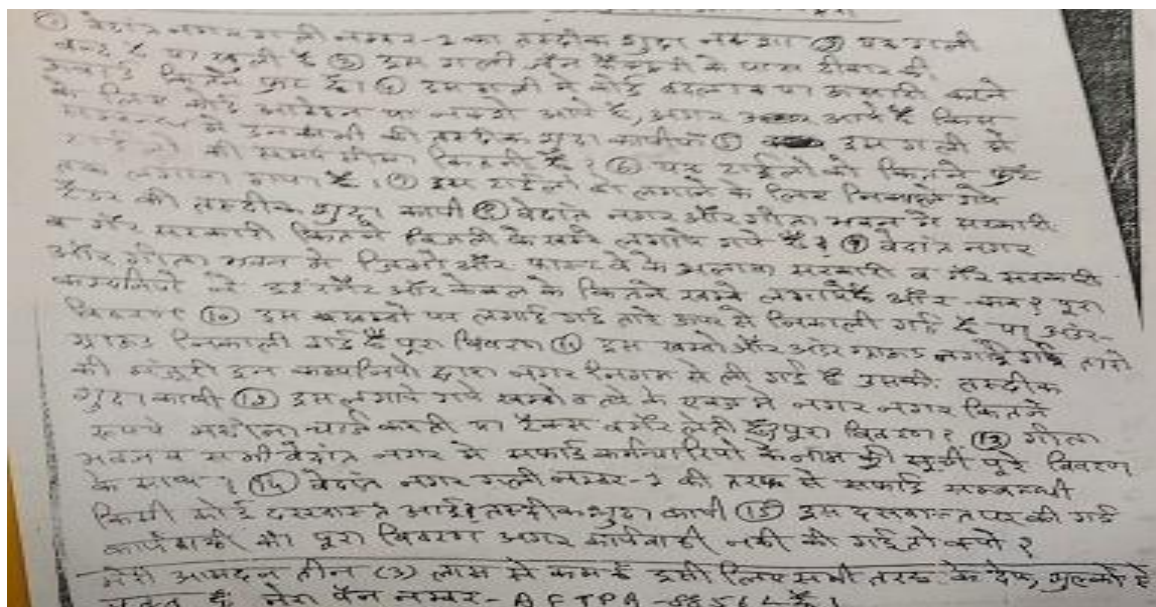 ① वेदांत नगर गली नम्बर-2 का तस्दीक शुदा नक्शा ② यह गली
बन्द है या खुली है ③ इस गली के पास दीवार की
ऊंचाई कितने फुट है। ④ इस गली में कोई बदलाव या करने
के लिए कोई आवेदन या नक्शे आये है, अगर आये है किस
सम्बन्ध में इन सभी की तस्दीक शुदा कापीयां ⑤ इस गली में
टाईलो की समय सीमा कितनी है? ⑥ यह टाईलो को कितने फुट
तक लगाया गया है। ⑦ इस टाईलो को लगाने के लिए निकाले गये
टैंडर की तस्दीक शुदा कापी ⑧ वेदांत नगर और गीता भवन में सरकारी
व गैर सरकारी कितने बिजली के खम्बे लगाये गये है? ⑨ वेदांत नगर
और गीता भवन में जिओ और के अलावा सरकारी व गैर सरकारी
कम्पनियों ने इंटरनेट और केबल के कितने खम्बे लगाये है और कब? पूरा
विवरण ⑩ इस खम्बो पर लगाई गई तारे ऊपर से निकाली गई है या अंडर-
ग्राऊंड निकाली गई है पूरा विवरण ⑪ इस खम्बो और अंडर ग्राऊंड लगाई गई तारो
की मंजूरी इन कम्पनियो द्वारा नगर निगम से ली गई है उसकी तस्दीक
शुदा कापी ⑫ इस लगाये गये खम्बो व तारे के एवज मे नगर नगर कितने
रूपये चार्ज करती या टैक्स वगैर लेती है पूरा विवरण? ⑬ गीता
भवन व सभी वेदांत नगर मे सफाई कर्मचारियो के नाम की सूची पूरे विवरण
के साथ? ⑭ वेदांत नगर गली नम्बर-2 की तरफ से सफाई सम्बन्धी
किसी कोई दरखास्त आई? तस्दीक शुदा कापी ⑮ इस दरखास्त पर की गई
कार्यवाही का पूरा विवरण अगर कार्यवाही नही की गई तो क्यो?
मेरी आमदन तीन (3) लाख से कम है इसी लिए सभी तरह के शुल्को से
मुक्त हूं मेरा पैन नम्बर-